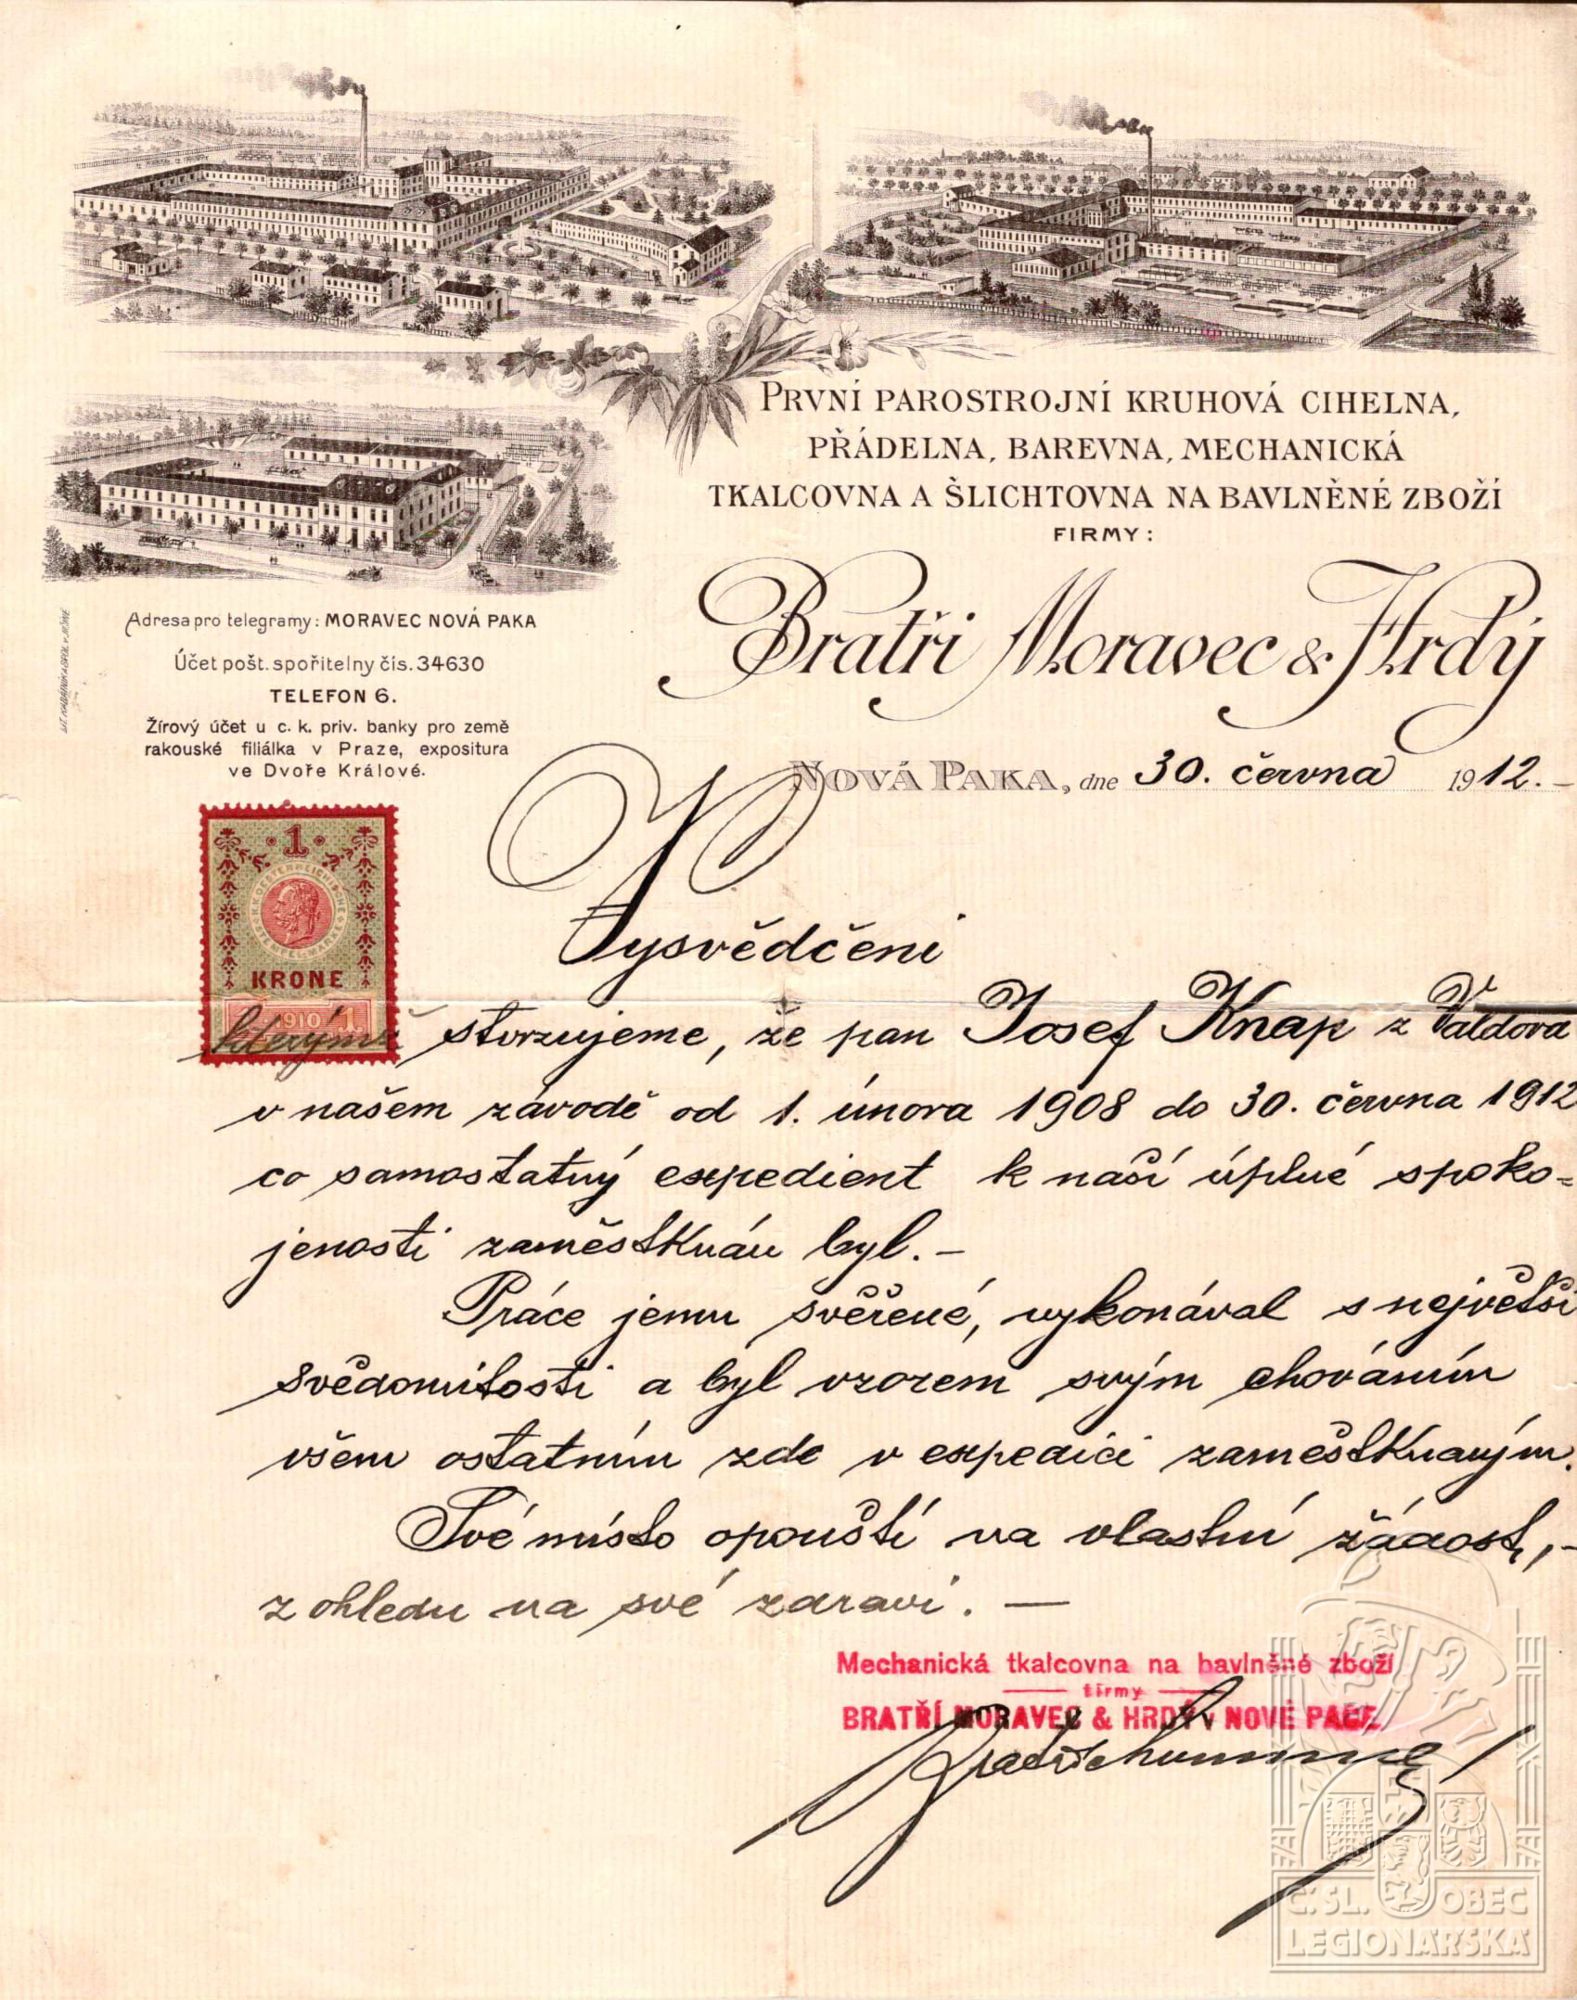 PRVNÍ PAROSTROJNÍ KRUHOVÁ CIHELNA,
PŘÁDELNA, BAREVNA, MECHANICKÁ
TKALCOVNA A ŠLICHTOVNA NA BAVLNĚNÉ ZBOŽÍ
FIRMY:
Bratři Moravec & Hrdý
Adresa pro telegramy: MORAVEC NOVÁ PAKA
Účet pošt. spořitelny čís. 34630
TELEFON 6.
Žírový účet u c. k. priv. banky pro země
rakouské filiálka v Praze, expositura
ve Dvoře Králové.
NOVÁ PAKA, dne 30. června 1912.-
1
K.K. OESTERREICHISCHE STEMPELMARKE
KRONE
1910 1
Vysvědčení
kterýmž stvrzujeme, že pan Josef Knap z Valdova
v našem závodě od 1. února 1908 do 30. června 1912
co samostatný expedient k naší úplné spoko=
jenosti zaměstknán byl.-
Práce jemu svěřené, vykonával s největší
svědomitostí a byl vzorem svým chováním
všem ostatním zde v expedici zaměstknaným.
Své místo opouští na vlastní žádost,-
z ohledu na své zdraví. —
Mechanická tkalcovna na bavlněné zboží
firmy
BRATŘÍ MORAVEC & HRDÝ v NOVÉ PACE
Č.SL. OBEC
LEGIONÁŘSKÁ